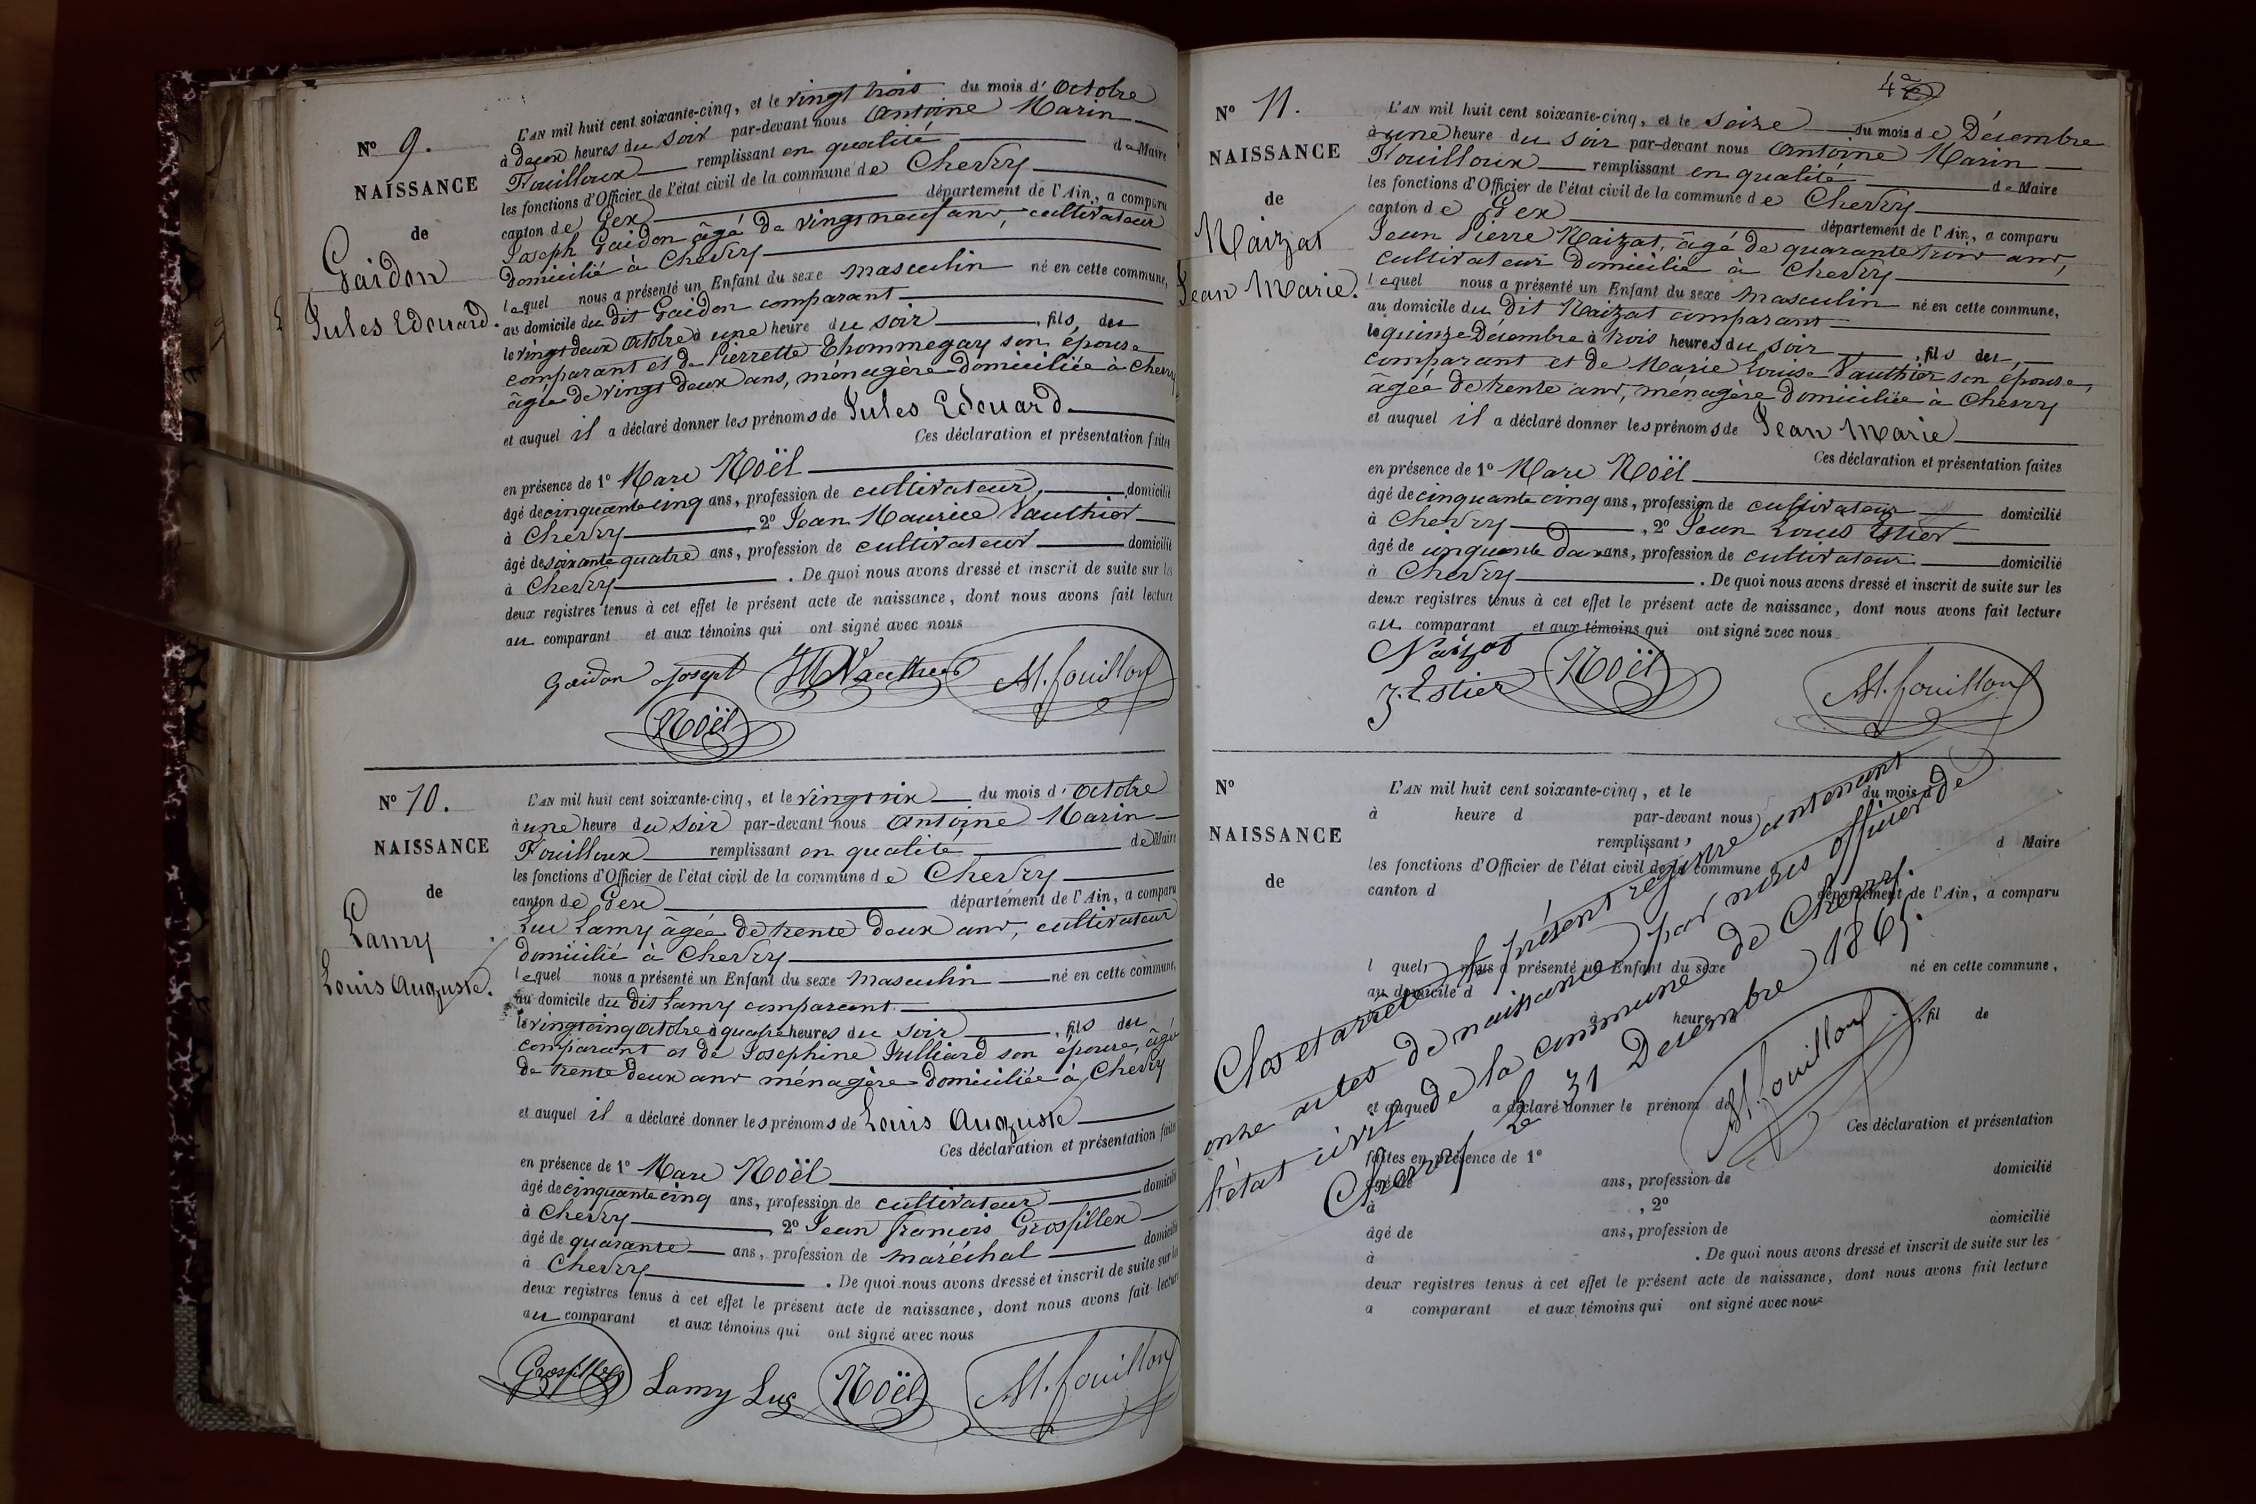 N° 9.
NAISSANCE
de
Gaidon
Jules Edouard.
L'AN mil huit cent soixante-cinq, et le vingt trois du mois d'Octobre
à deux heures du soir par-devant nous Antoine Marin
Fouilloux remplissant en qualité de Maire
les fonctions d'Officier de l'état civil de la commune de Chevry
canton de Gex département de l'Ain, a comparu
Joseph Gaidon âgé de vingt neuf ans, cultivateur
domicilié à Chevry
lequel nous a présenté un Enfant du sexe masculin né en cette commune,
au domicile du dit Gaidon comparant
le vingt deux Octobre à une heure du soir, fils du
comparant et de Pierrette Thommegay son épouse
âgée de vingt deux ans, ménagère domiciliée à Chevry
et auquel il a déclaré donner les prénoms de Jules Edouard
Ces déclaration et présentation faites
en présence de 1° Marc Noël
âgé de cinquante cinq ans, profession de cultivateur, domicilié
à Chevry 2° Jean Maurice Vauthier
âgé de soixante quatre ans, profession de cultivateur domicilié
à Chevry . De quoi nous avons dressé et inscrit de suite sur les
deux registres tenus à cet effet le présent acte de naissance, dont nous avons fait lecture
au comparant et aux témoins qui ont signé avec nous
Gaidon Joseph JM Vauthier AM. fouilloux
Noël
N° 10.
NAISSANCE
de
Lamy
Louis Auguste.
L'AN mil huit cent soixante-cinq, et le vingt six du mois d'Octobre
à une heure du soir par-devant nous Antoine Marin
Fouilloux remplissant en qualité de Maire
les fonctions d'Officier de l'état civil de la commune de Chevry
canton de Gex département de l'Ain, a comparu
Luc Lamy âgée de trente deux ans, cultivateur
domicilié à Chevry
lequel nous a présenté un Enfant du sexe masculin né en cette commune,
au domicile du dit Lamy comparant
le vingt cinq Octobre à quatre heures du soir, fils du
comparant et de Josephine Julliard son épouse, âgée
de trente deux ans ménagère domiciliée à Chevry
et auquel il a déclaré donner les prénoms de Louis Auguste
Ces déclaration et présentation faites
en présence de 1° Marc Noël
âgé de cinquante cinq ans, profession de cultivateur domicilié
à Chevry, 2° Jean françois Grosfillex
âgé de quarante ans, profession de maréchal domicilié
à Chevry . De quoi nous avons dressé et inscrit de suite sur les
deux registres tenus à cet effet le présent acte de naissance, dont nous avons fait lecture
au comparant et aux témoins qui ont signé avec nous
Grosfillex Lamy Luc Noël AM. fouilloux
N° 11.
NAISSANCE
de
Naizat
Jean Marie.
L'AN mil huit cent soixante-cinq, et le seize du mois de Décembre
à une heure du soir par-devant nous Antoine Marin
Fouilloux remplissant en qualité de Maire
les fonctions d'Officier de l'état civil de la commune de Chevry
canton de Gex département de l'Ain, a comparu
Jean Pierre Naizat, âgé de quarante trois ans,
cultivateur domicilié à Chevry
lequel nous a présenté un Enfant du sexe masculin né en cette commune,
au domicile du dit Naizat comparant
le quinze Décembre à trois heures du soir, fils du
comparant et de Marie Louise Vauthier son épouse,
âgée de trente ans, ménagère domiciliée à Chevry
et auquel il a déclaré donner les prénoms de Jean Marie
Ces déclaration et présentation faites
en présence de 1° Marc Noël
âgé de cinquante cinq ans, profession de cultivateur domicilié
à Chevry, 2° Jean Louis Estier
âgé de cinquante deux ans, profession de cultivateur domicilié
à Chevry . De quoi nous avons dressé et inscrit de suite sur les
deux registres tenus à cet effet le présent acte de naissance, dont nous avons fait lecture
au comparant et aux témoins qui ont signé avec nous
Naizat
J. Estier Noël AM. fouilloux
N°
NAISSANCE
de
L'AN mil huit cent soixante-cinq, et le du mois d
à heure d par-devant nous
remplissant d Maire
les fonctions d'Officier de l'état civil de la commune d
canton d département de l'Ain, a comparu
l quel nous a présenté un Enfant du sexe né en cette commune,
au domicile d
à heure d , fil de
et auquel a déclaré donner le prénom de
Ces déclaration et présentation
faites en présence de 1°
âgé de ans, profession de domicilié
à , 2°
âgé de ans, profession de domicilié
à . De quoi nous avons dressé et inscrit de suite sur les
deux registres tenus à cet effet le présent acte de naissance, dont nous avons fait lecture
a comparant et aux témoins qui ont signé avec nous
Clos et arrêté le présent registre contenant
onze actes de naissance par nous officier de
l'état civil de la commune de Chevry.
Chevry le 31 Décembre 1865.
AM. fouilloux